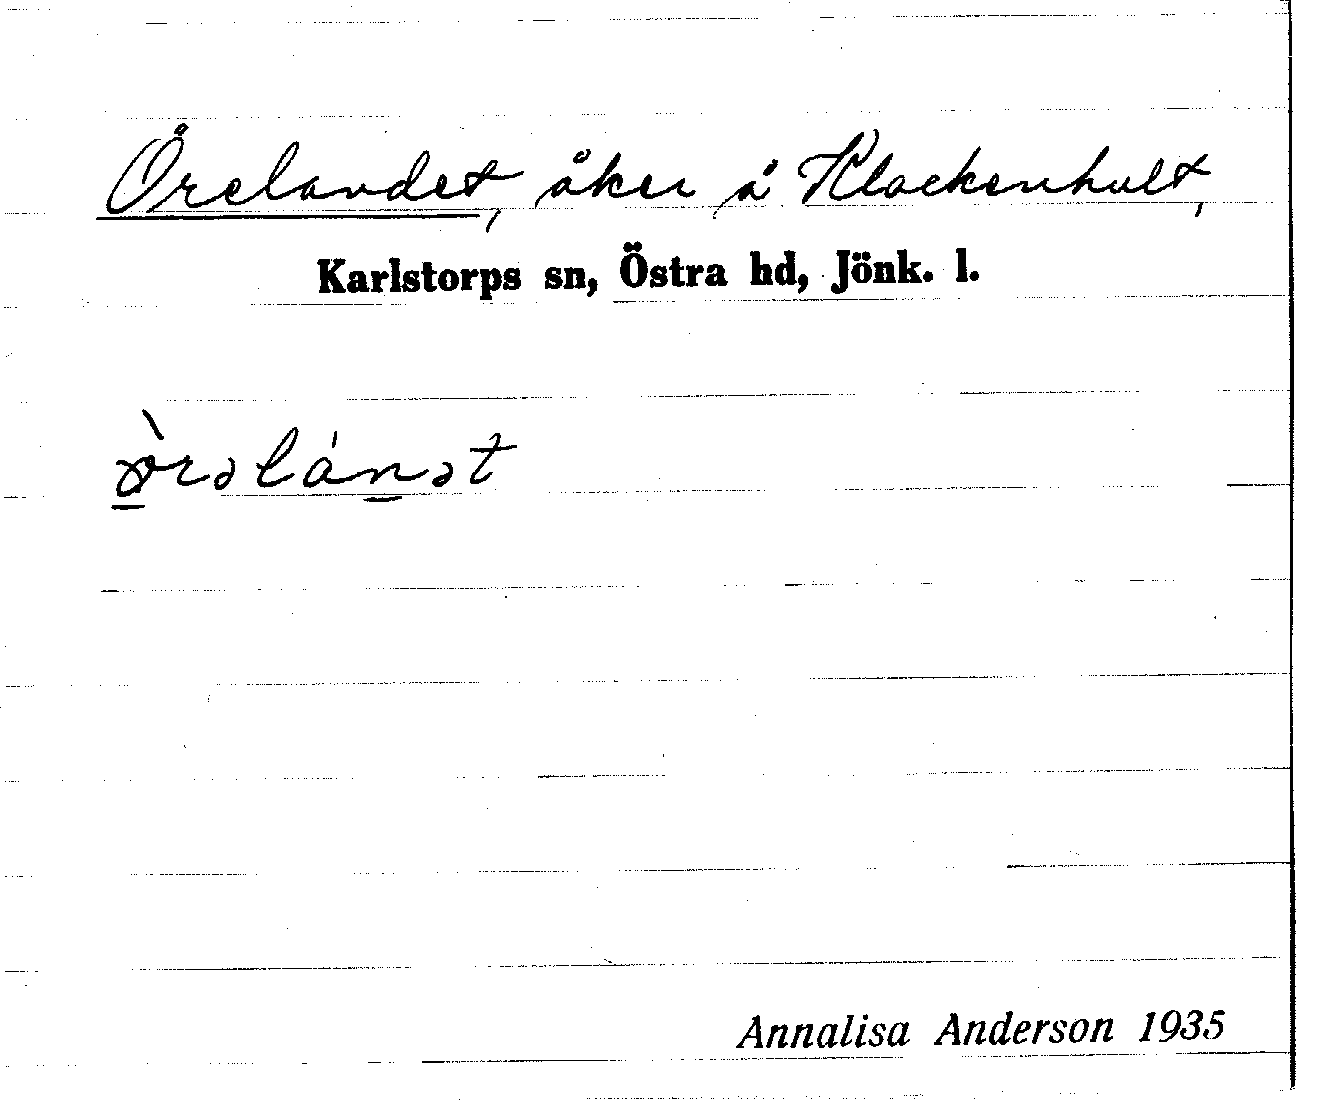 Örelandet, åker å Klackenhult,
Karlstorps sn, Östra hd, Jönk. l.
ö̀rəlánət
Annalisa Anderson 1935